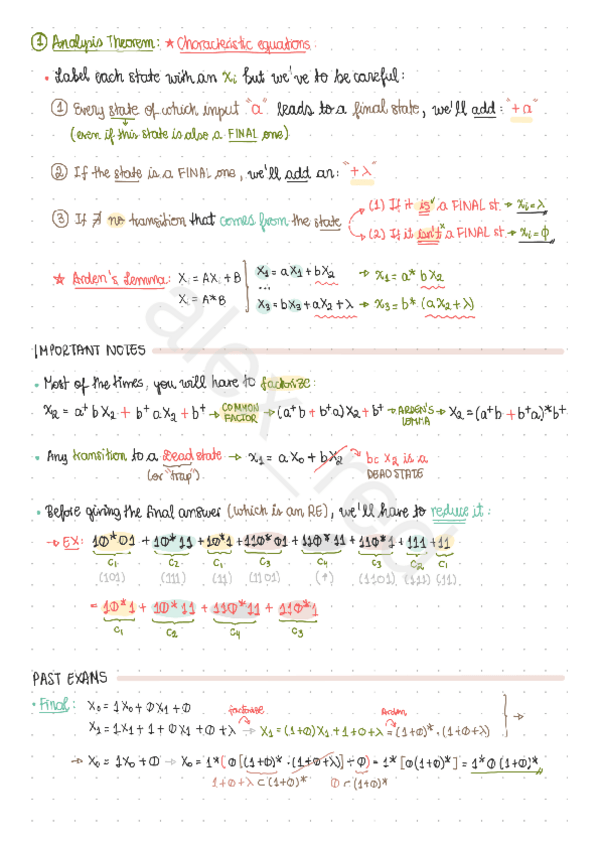 ① Analysis Theorem: ★ Characteristic equations:
• Label each state with an Xi but we've to be careful:
① Every state of which input "a" leads to a final state, we'll add: "+a"
(even if this state is also a FINAL one)
② If the state is a FINAL one, we'll add an: "+λ"
③ If ∄ no transition that comes from the state
(1) If it is a FINAL st. → Xi=λ
(2) If it isn't a FINAL st. → Xi=ϕ
★ Arden's Lemma: X = AX + B
X = A*B
X1 = aX1 + bX2 → X1 = a* bX2
...
X3 = bX3 + aX2 + λ → X3 = b* (aX2 + λ)
IMPORTANT NOTES
• Most of the times, you will have to factorize:
X2 = a+bX2 + b+aX2 + b+ → COMMON FACTOR → (a+b + b+a)X2 + b+ → ARDEN'S LEMMA → X2 = (a+b + b+a)*b+
• Any transition to a Dead state → X1 = aX0 + bX2 bc X2 is a
(or "trap") DEAD STATE
• Before giving the final answer (which is an RE), we'll have to reduce it:
→ EX: 10*01 + 10*11 + 10*1 + 110*01 + 110*11 + 110*1 + 111 + 11
C1 C2 C1 C3 C4 C3 C2 C1
(101) (111) (11) (1101) (↑) (1101) (111) (11)
= 10*1 + 10*11 + 110*11 + 110*1
C1 C2 C4 C3
PAST EXAMS
• Final: X0 = 1X0 + 0X1 + 0
factorise Arden
X1 = 1X1 + 1 + 0X1 + 0 + λ → X1 = (1+0)X1 + 1+0+λ = (1+0)* · (1+0+λ) →
→ X0 = 1X0 + 0 → X0 = 1*[0[(1+0)* · (1+0+λ)] + 0) = 1*[0(1+0)*] = 1*0(1+0)*
1+0+λ ⊂ (1+0)* 0 ⊂ (1+0)*
alex_red